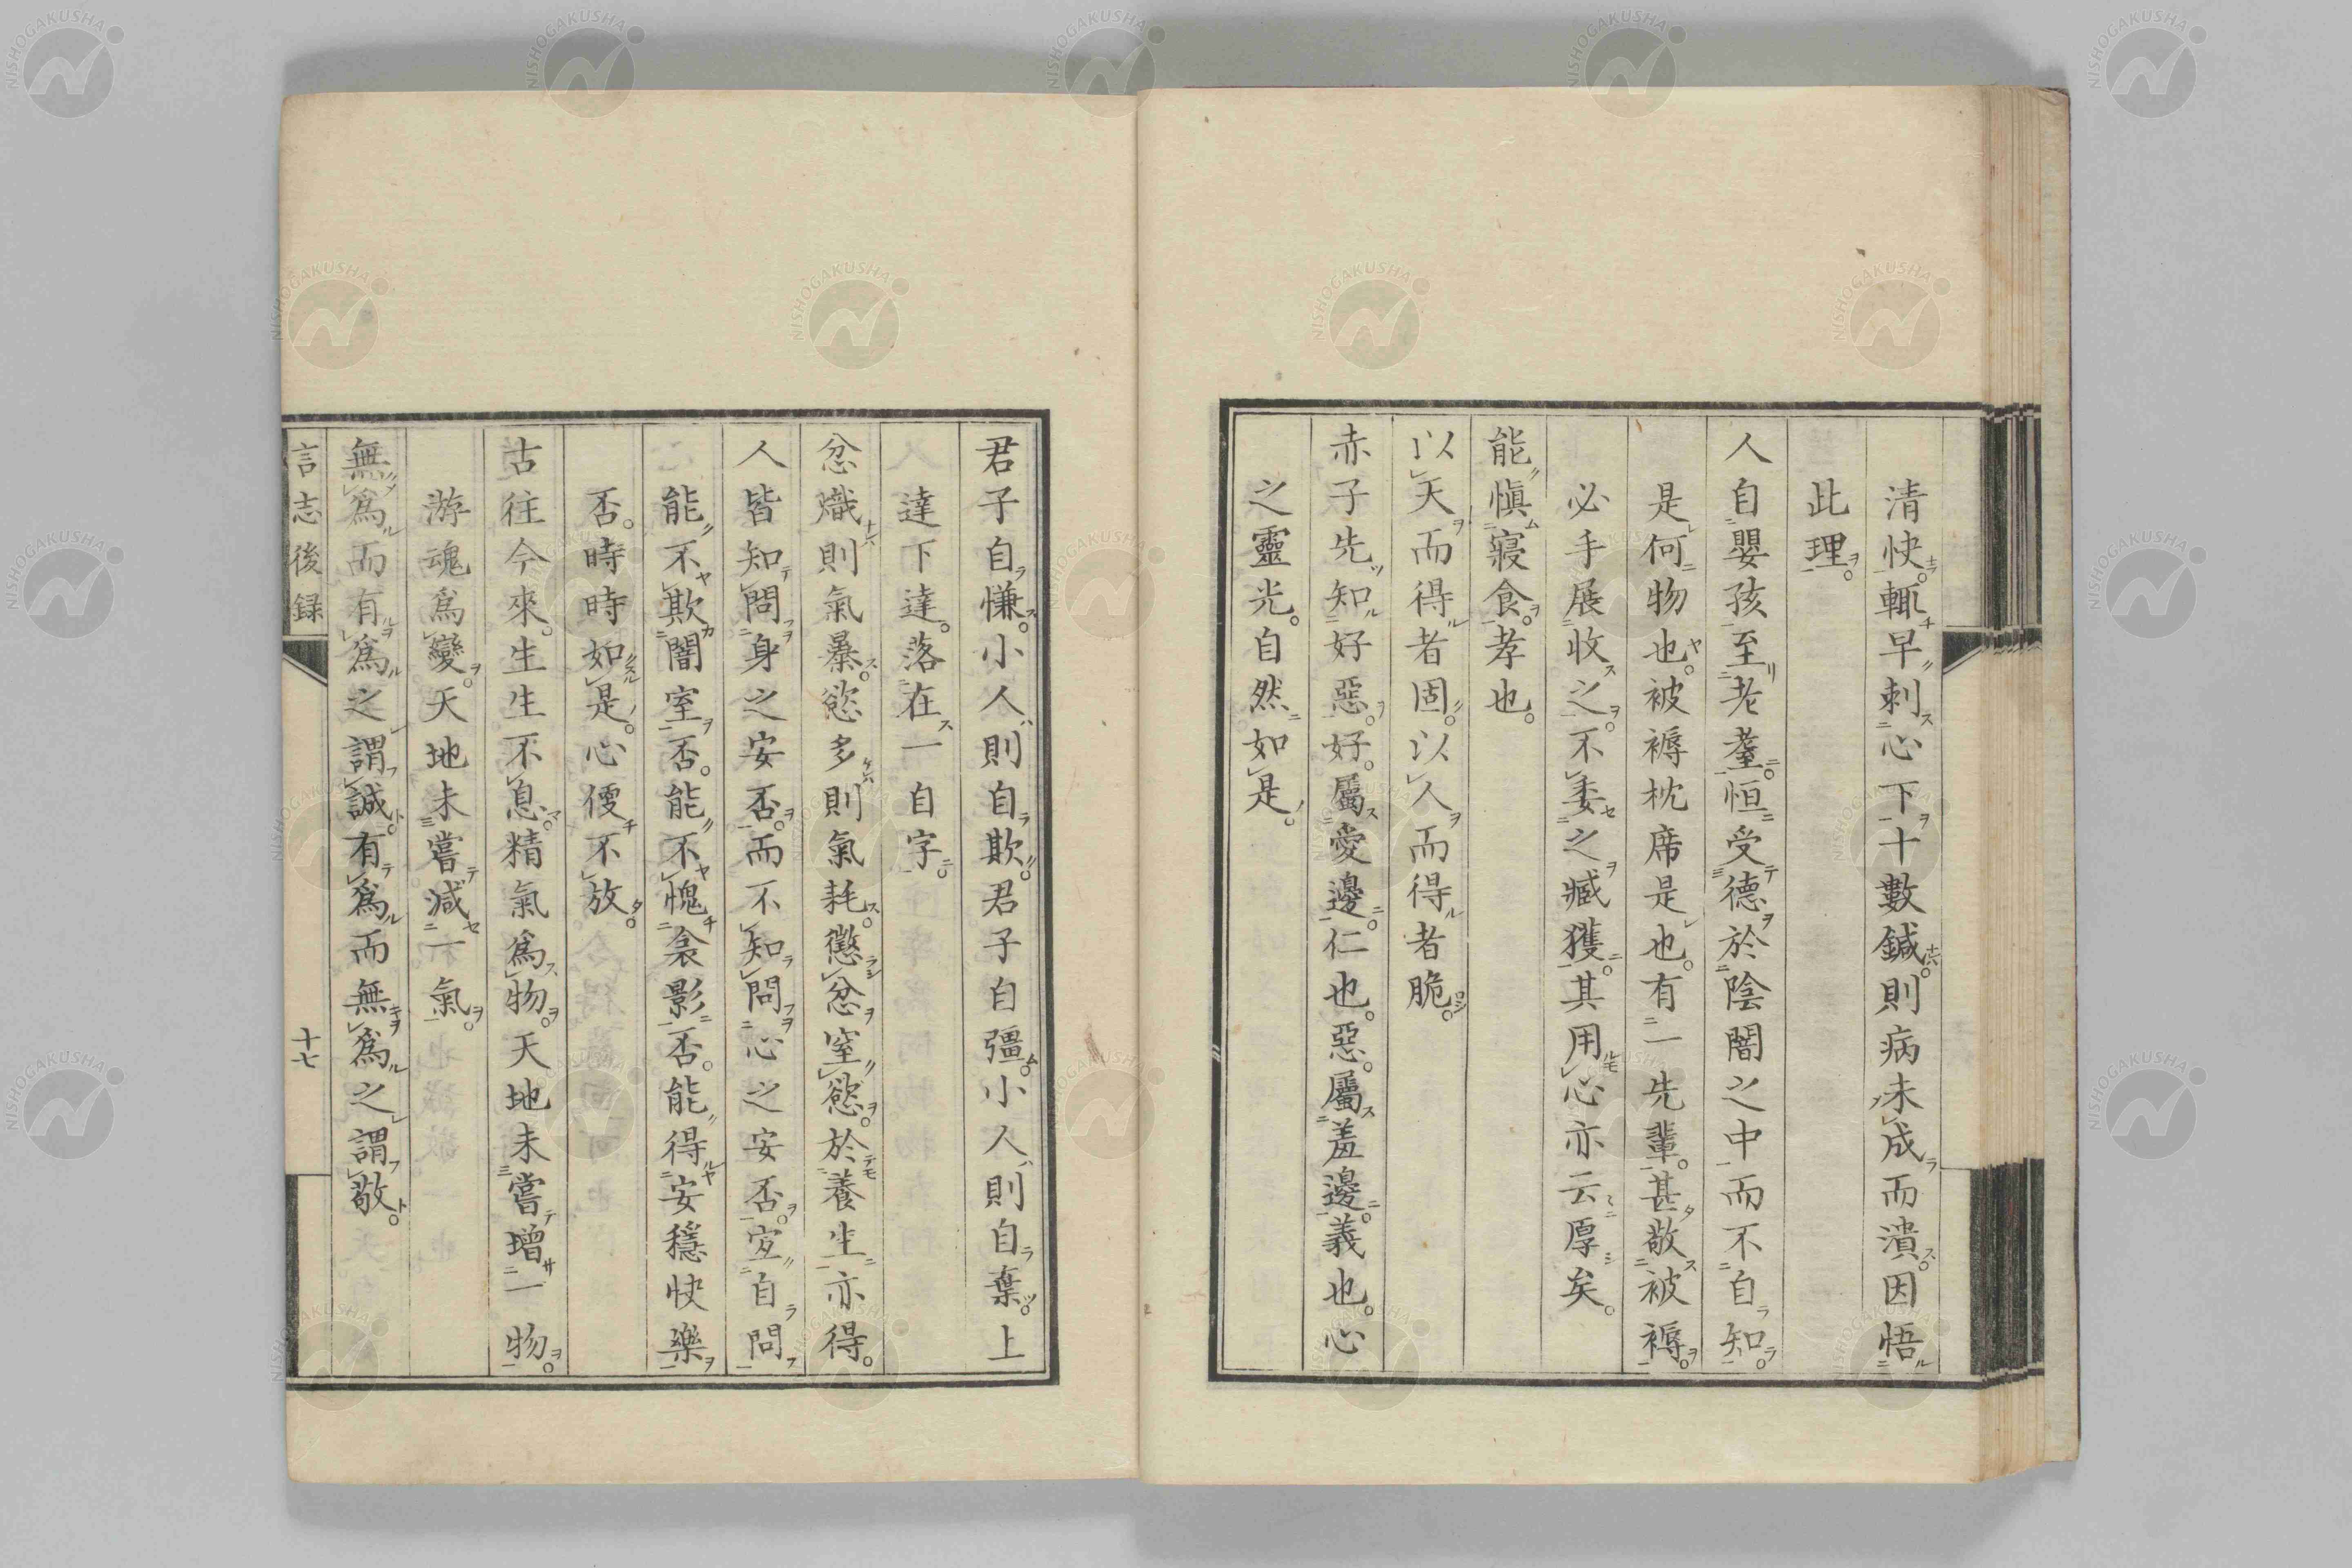 清快輒早刺心下十數鍼則病未成而潰因悟
此理
人自嬰孩至老耋恒受德於陰闇之中而不自知
是何物也被褥枕席是也有一先輩甚敬被褥
必手展收之不委之臧獲其用心亦云厚矣
能愼寢食孝也
以天而得者固以人而得者脆
赤子先知好惡好屬愛邊仁也惡屬羞邊義也心
之靈光自然如是
君子自慊小人則自欺君子自彊小人則自棄上
達下達落在一自字
忿熾則氣暴慾多則氣耗懲忿窒慾於養生亦得
人皆知問身之安否而不知問心之安否宜自問
能不欺闇室否能不愧衾影否能得安穩快樂
否時時如是心便不放
古往今來生生不息精氣爲物天地未嘗增一物
游魂爲變天地未嘗減一氣
無爲而有爲之謂誠有爲而無爲之謂敬
言志後録
十七
NISHOGAKUSHA